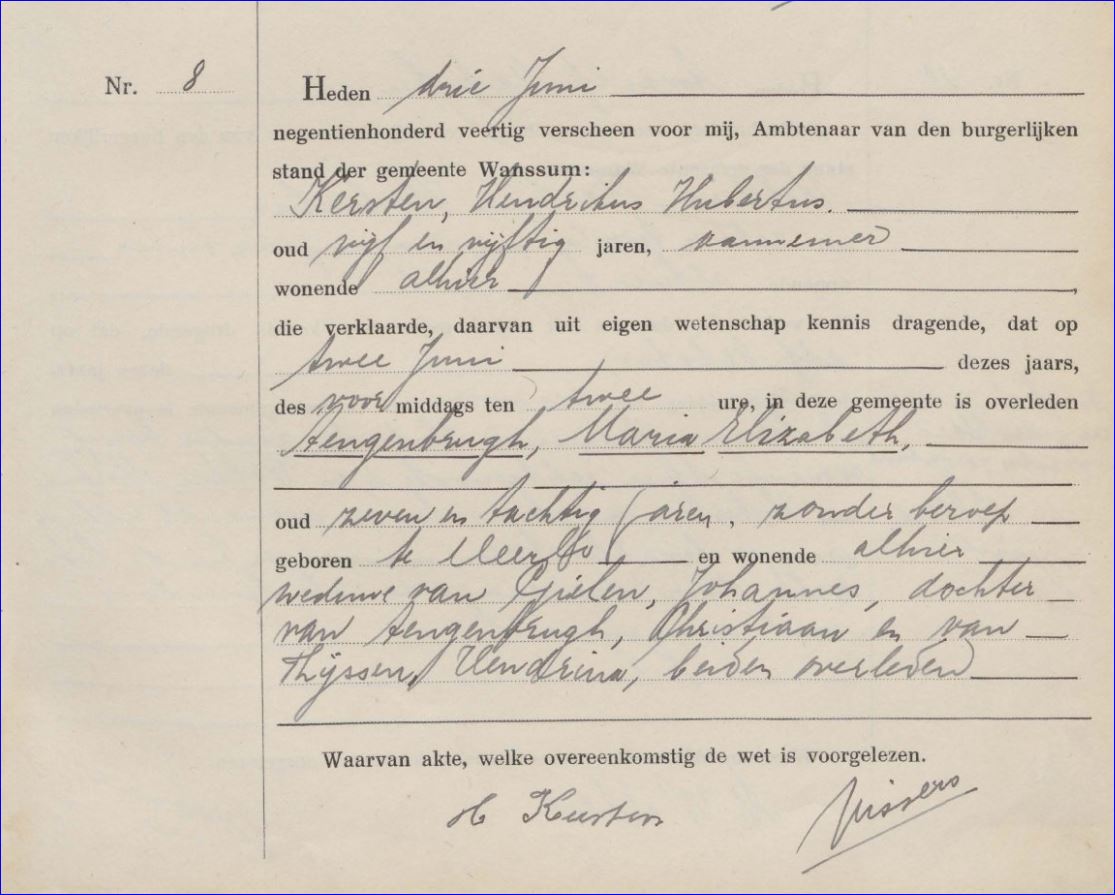 Nr. 8
Heden drie Juni
negentienhonderd veertig verscheen voor mij, Ambtenaar van den burgerlijken
stand der gemeente Wanssum:
Kersten, Hendrikus Hubertus.
oud vijf en vijftig jaren, aannemer
wonende alhier,
die verklaarde, daarvan uit eigen wetenschap kennis dragende, dat op
twee Juni dezes jaars,
des voor middags ten twee ure, in deze gemeente is overleden
Aengenbrugh, Maria Elizabeth,
oud zeven en tachtig jaren, zonder beroep
geboren te Meerlo en wonende alhier
weduwe van Gielen, Johannes, dochter
van Aengenbrugh, Christiaan en van
Thijssen, Hendrina, beiden overleden
Waarvan akte, welke overeenkomstig de wet is voorgelezen.
H Kersten
Vissers